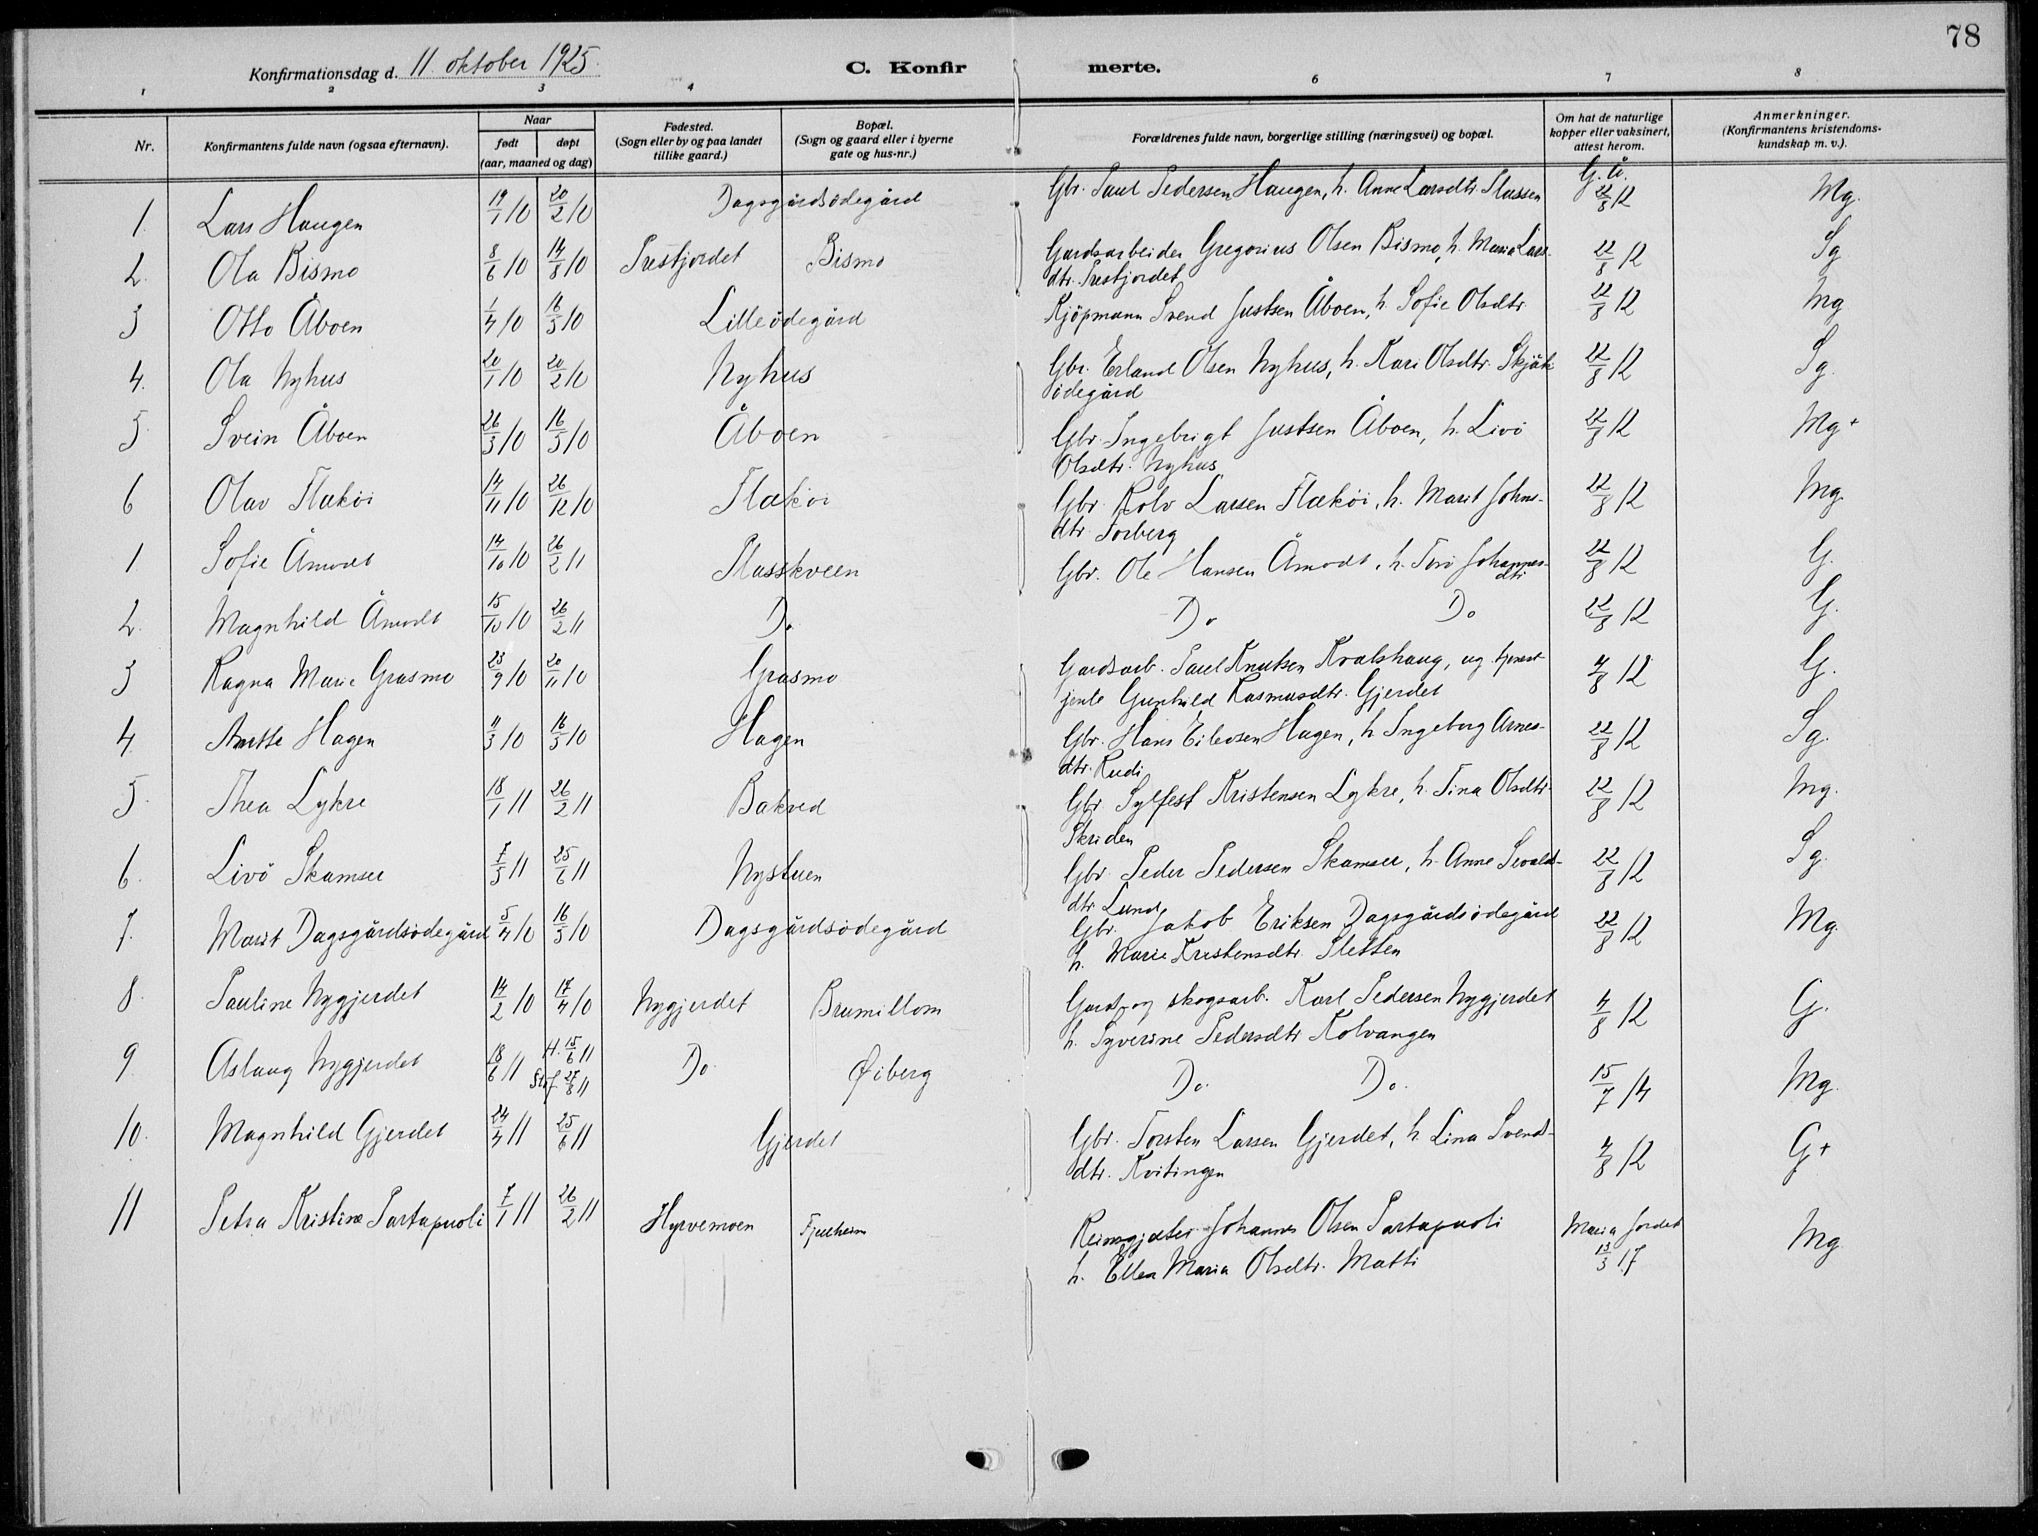 78
Konfirmationsdag d. 11 oktober 1925. C. Konfirmerte.
1 2 3 4 6 7 8
Nr. Konfirmantens fulde navn (ogsaa efternavn). Naar født døpt (aar, maaned og dag) Fødested. (Sogn eller by og paa landet tillike gaard.) Bopæl. (Sogn og gaard eller i byerne gate og hus-nr.) Forældrenes fulde navn, borgerlige stilling (næringsvei) og bopæl. Om hat de naturlige kopper eller vaksinert, attest herom. Anmerkninger. (Konfirmantens kristendoms-kundskap m. v.).
1. Lars Haugen 19/1 10 20/2 10 Dagsgårdsödegård Gbr. Paul Pedersen Haugen, h. Anne Larsdtr. Plassen G. Å. 22/8 12 Mg.
2. Ola Bismo 8/6 10 14/8 10 Prestjordet Bismo Gardsarbeider Gregorius Olsen Bismo, h. Maria Lars-
dtr. Prestjordet 22/8 12 Sg
3 Otto Åboen 1/4 10 16/5 10 Lilleödegård Kjöpmann Svend Justsen Åboen, h. Sofie Olsdtr 22/8 12 Mg
4. Ola Nyhus 20/1 10 20/2 10 Nyhus Gbr. Erland Olsen Nyhus, h. Kari Olsdtr. Skjåk
ödegård 22/8 12 Sg.
5 Svein Åboen 26/3 10 16/5 10 Åboen Gbr. Ingebrigt Justsen Åboen, h. Livö
Olsdtr. Nyhus 22/8 12 Mg+
6 Olav Flækøi 14/11 10 26/12 10 Flækøi Gbr. Rolv Larsen Flækøi, h. Marit Johns-
dtr. Forberg 22/8 12 Mg.
1 Sofie Åmodt 14/10 10 26/2 11 Plasskveen Gbr. Ole Hansen Åmodt, h. Torö Johannes-
dtr 22/8 12 G.
2. Magnhild Åmodt 15/10 10 26/2 11 Do Do Do 22/8 12 G.
3 Ragna Marie Grasmo 23/9 10 20/11 10 Grasmo Gardsarb. Paul Knutsen Kvalshaug, og tjenest-
jente Gunhild Rasmusdtr. Gjerdet 4/8 12 G.
4. Anette Hagen 11/3 10 16/5 10 Hagen Gbr. Hans Eilevsen Hagen, h. Ingeborg Arnes-
dtr. Rudi 22/8 12 Sg.
5. Thea Lykre 18/1 11 26/2 11 Bakved Gbr. Sylfest Kristensen Lykre, h. Tina Olsdtr.
Skriden 22/8 12 Mg.
6. Livö Skamser 7/5 11 25/6 11 Nystuen Gbr. Peder Pedersen Skamser, h. Anne Sevalds-
dtr. Lund 22/8 12 Sg.
7. Marit Dagsgårdsödegård 5/4 10 16/5 10 Dagsgårdsödegård Gbr. Jakob Eriksen Dagsgårdsödegård
h. Marie Kristensdtr. Sletten 22/8 12 Mg.
8. Pauline Nygjerdet 14/2 10 17/4 10 Nygjerdet Brumillom Gards- og skogsarb. Karl Pedersen Nygjerdet
h. Syverine Pedersdtr. Kolvangen 4/8 12 G.
9. Aslaug Nygjerdet 18/6 11 H. 15/6 11 Stf 27/8 11 Do. Öiberg Do. Do. 15/7 14 Mg.
10. Magnhild Gjerdet 24/4 11 25/6 11 Gjerdet Gbr. Torsten Larsen Gjerdet, h. Lina Svends-
dtr. Kvitingen 4/8 12 G+
11 Petra Kristine Partapuoli 7/1 11 26/2 11 Hyrvemoen Fjellheim Reinsgjæter Johannes Olsen Partapuoli
h. Ellen Maria Olsdtr. Matti Maria Jordet 13/3 17 Mg